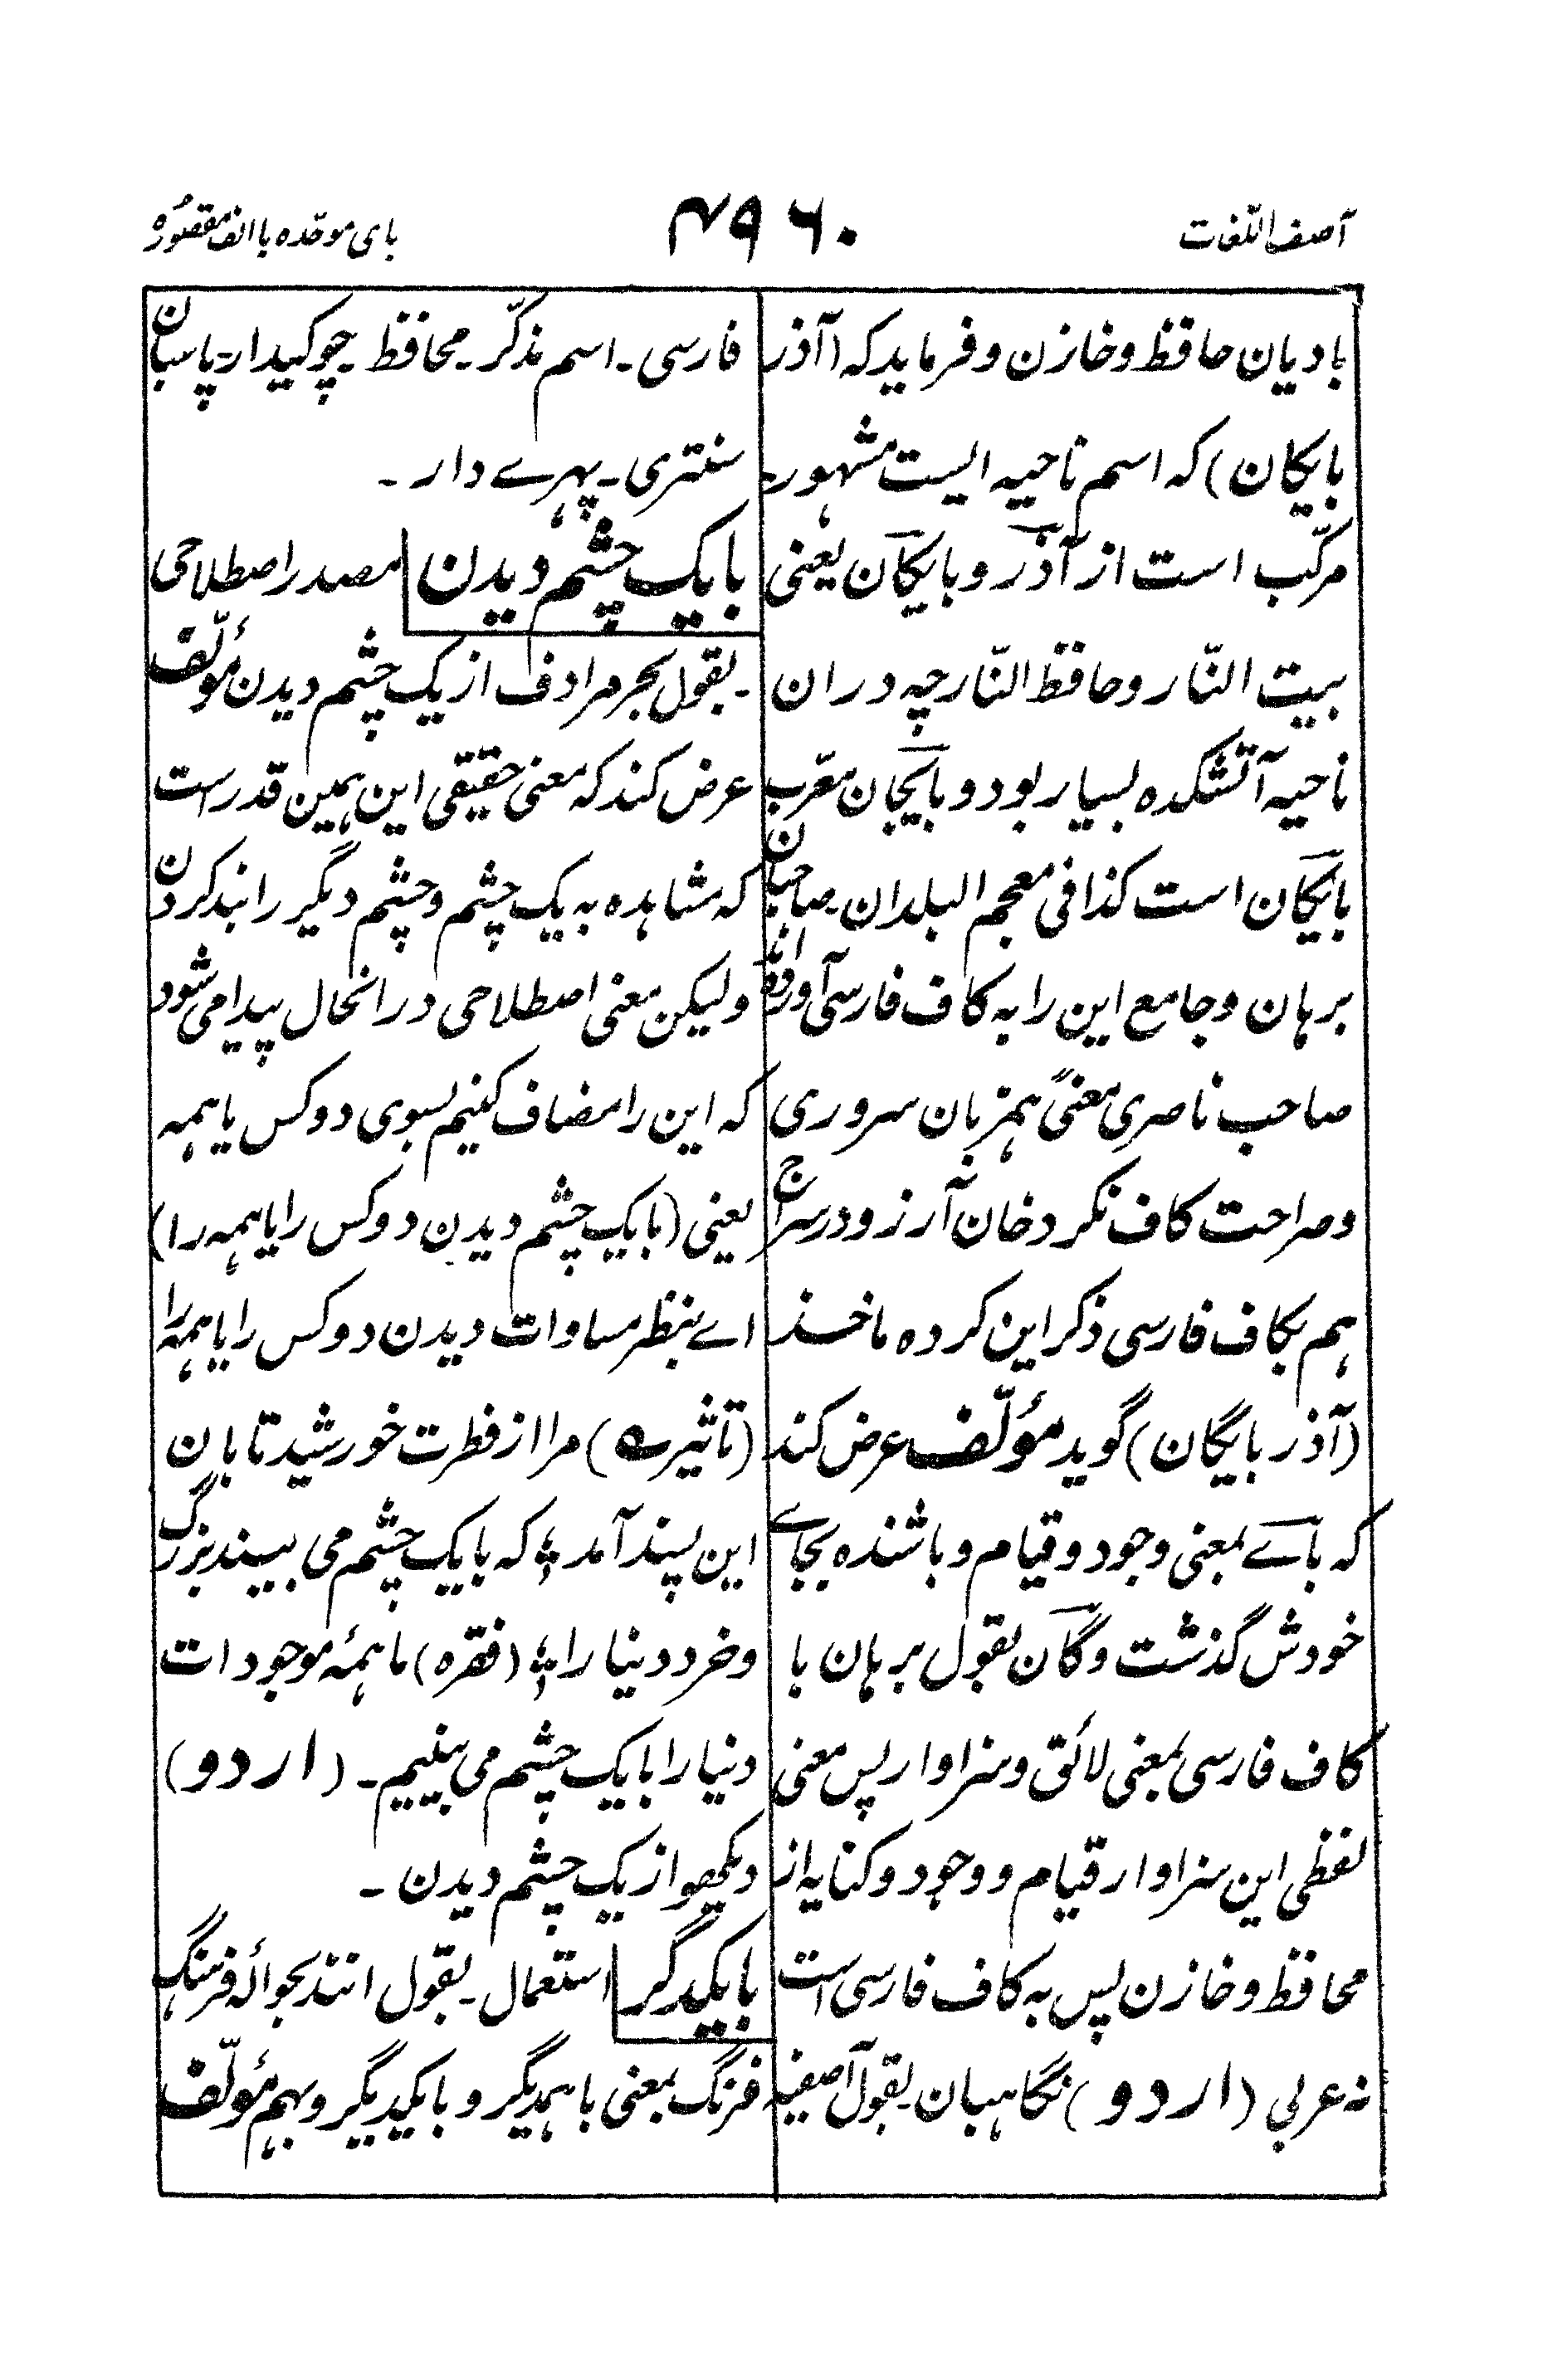 آصف اللّغات
۴۹۶۰
بای موحّده با الف مقصوره
بادیان حافظ و خازن و فرماید که (آذر
بایکان) که اسم ناحیه ایست مشهور۔
مرکّب است از آذر و بایکان یعنی
بیت النّار و حافظ النّار چه دران
ناحیه آتشکده بسیار بود و بایجان معرّب
بایکان است کذا فی معجم البلدان۔ صاحبان
برہان و جامع این را به کاف فارسی آورده اند
صاحب ناصری معنیً ہمزبان سروری
و صراحت کاف نکرد خان آرزو در سراج
ہم بکاف فارسی ذکر این کرده ماخذ
(آذر بایگان) گوید مؤلّف عرض کند
که بائے بمعنی وجود و قیام و باشنده بجاے
خودش گذشت و گان بقول برہان با
کاف فارسی بمعنی لائق و سزاوار پس معنی
لفظی این سزاوار قیام و وجود و کنایه از
محافظ و خازن پس به کاف فارسی است
نه عربی (اردو) نگاہبان۔ بقول آصفیه
فارسی۔ اسم مذکّر۔ محافظ۔ چوکیدار۔ پاسبان
سنتری۔ پہرے دار۔
بایک چشم دیدن مصدر اصطلاحی
۔ بقول بحر مرادف از یک چشم دیدن مؤلّف
عرض کند که معنی حقیقی این ہمین قدر است
که مشاہده به یک چشم و چشم دیگر را بند کردن
ولیکن معنی اصطلاحی در انحال پیدا می شود
که این را مضاف کنیم بسوی دو کس یا ہمه
یعنی (بایک چشم دیدن دو کس را یا ہمه را)
اے بنظر مساوات دیدن دو کس را یا ہمه را
(تاثیر ؎) مرا از فطرت خورشید تابان
این پسند آمد ؛ که بایک چشم می بیند بزرگ
و خرد دنیا را ؛ (فقره) ما ہمۂ موجودات
دنیا را بایک چشم می بینیم۔ (اردو)
دیکھو از یک چشم دیدن۔
بایکدگر استعمال۔ بقول انند بحوالۂ فرہنگ
فرنگ بمعنی باہمدیگر و بایکدیگر و بہم مؤلّف